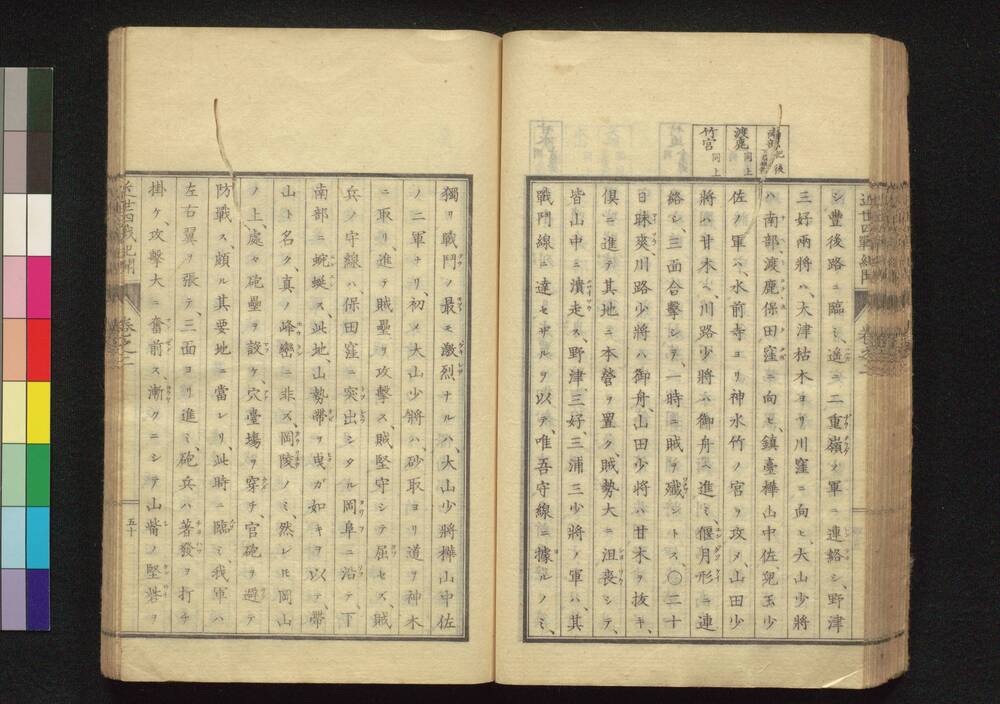 南部 肥後
渡鹿 同上
竹宮 同上
シ豊後路ニ臨ミ、遙ニ二重嶺ノ軍ニ連絡シ、野津
三好兩將ハ、大津枯木ヨリ川窪ニ向ヒ、大山少將
ハ南部、渡鹿保田窪ニ向ヒ、鎮臺樺山中佐、兒玉少
佐ノ軍ハ、水前寺ヨリ神水竹ノ宮ヲ攻メ、山田少
將ハ甘木ヘ、川路少將ハ御舟ヘ進ミ、偃月形ニ連
絡シ、三面合擊シテ、一時ニ賊ヲ殱シトス、〇二十
日昧爽、川路少將ハ御舟、山田少將ハ甘木ヲ拔キ、
俱ニ進テ其地ニ本營ヲ置ク、賊勢大ニ沮喪シテ、
皆山中ニ潰走ス、野津、三好、三浦三少將ノ軍ハ、其
戰鬥線ニ達セザルヲ以テ、唯吾守線ニ據ルノミ、
獨リ戰鬥ノ最モ激烈ナルハ、大山少將樺山中佐
ノ二軍ナリ、初メ大山少將ハ、砂取ヨリ道ヲ神木
ニ取リ、進テ賊壘ヲ攻擊ス、賊堅守シテ屈セズ、賊
兵ノ守線ハ、保田窪ニ突出シタル岡阜ニ沿テ、下
南部ニ蜿蜒ス、此地、山勢帶ヲ曳ガ如キヲ以テ、帶
山ト名ク、真ノ峰巒ニ非ズ、岡陵ノミ、然レ𪜈岡山
ノ上、處々砲壘ヲ設ケ、穴臺塲ヲ穿チ、官砲ヲ避テ
防戰ス、頗ル其要地ニ當レリ、此時ニ臨ミ、我軍ハ
左右翼ヲ張テ、三面ヨリ進ミ、砲兵ハ著發ヲ打チ
掛ケ、攻擊大ニ奮前ス、漸クニシテ山觜ノ堅砦ヲ
五十